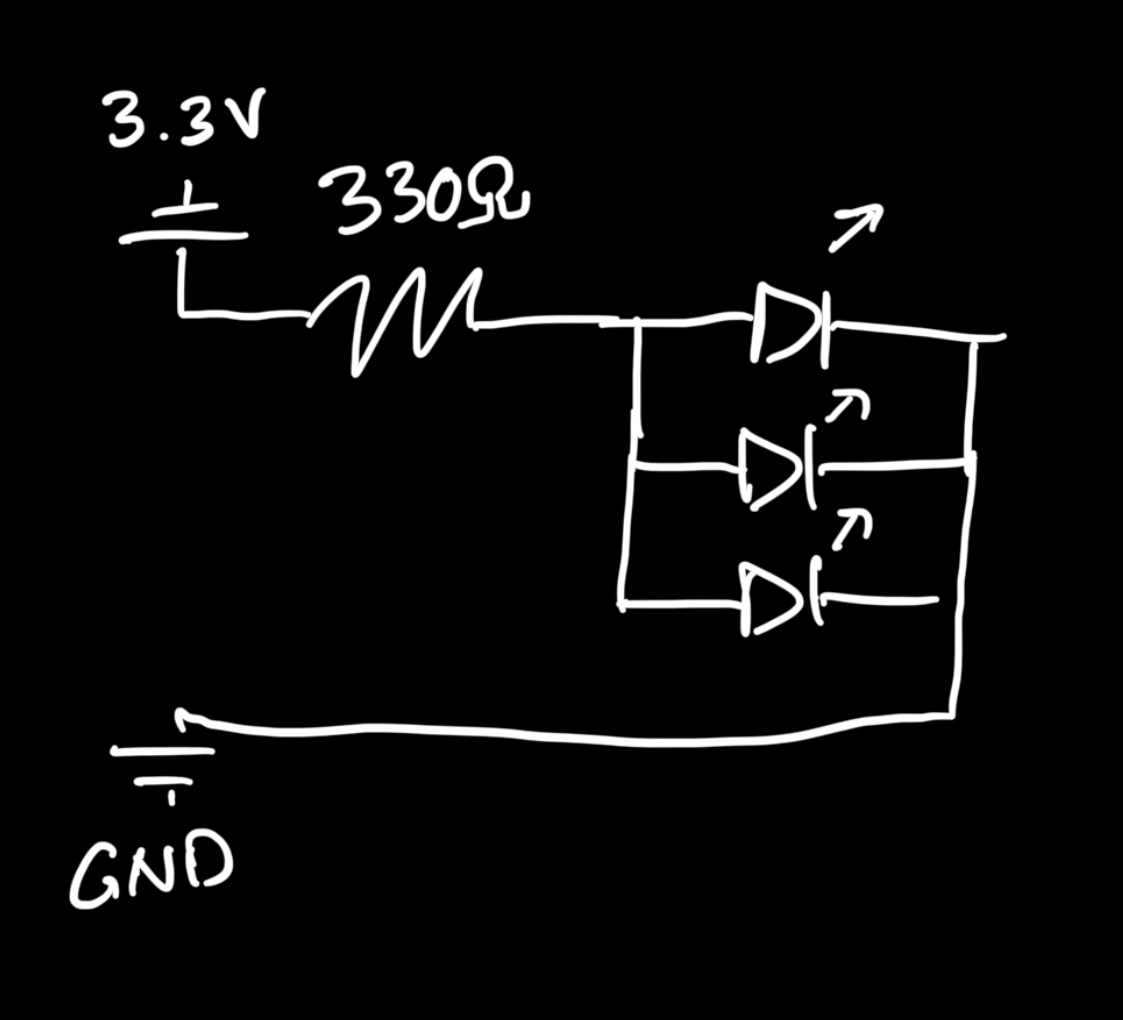 3.3V
330Ω
GND